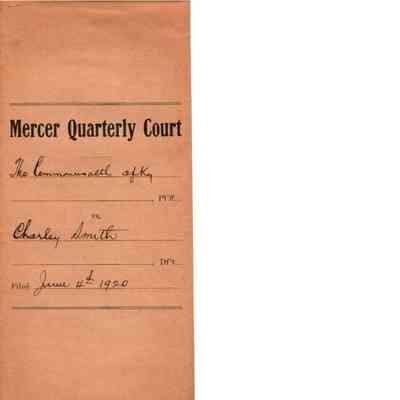 Mercer Quarterly Court
The Commonwealth of Ky
PTF.
vs.
Charley Smith
DFT.
Filed June 4th 1920